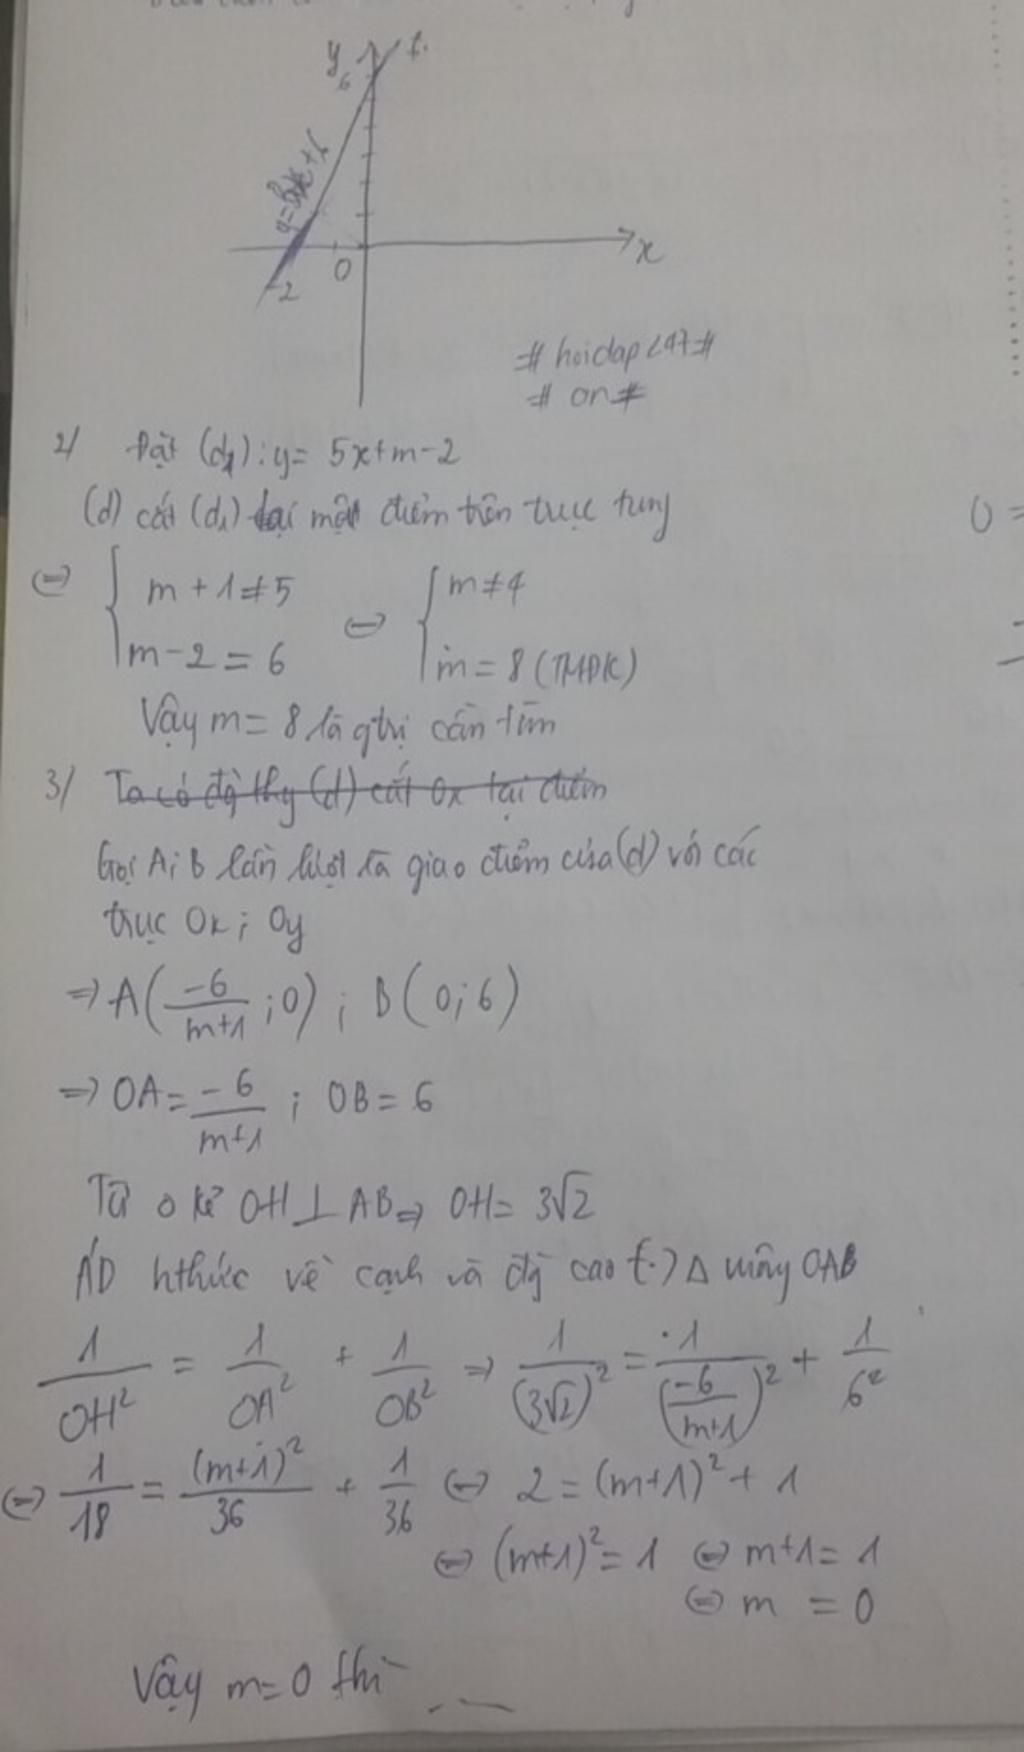 y t.
6
y=3x+6
x
0
-2
#hoidap247#
#on#
2/ Đặt (d₁): y= 5x+m-2
(d) cắt (d₁) tại một điểm trên trục tung
⇔ { m+1≠5 ⇔ { m≠4
m-2=6 m=8 (TMĐK)
Vậy m= 8 là gtrị cần tìm
0=
3/ Ta có độ thy (d) cắt Ox tại điểm
Gọi A; B lần lượt là giao điểm của (d) với các
trục Ox; Oy
⇒ A(-6/(m+1); 0); B(0; 6)
⇒ OA = -6/(m+1); OB = 6
Từ O kẻ OH⊥AB ⇒ OH= 3√2
ÁD hthức về cạnh và đg cao t.) Δ vuông OAB
1/OH² = 1/OA² + 1/OB² ⇒ 1/(3√2)² = 1/(-6/(m+1))² + 1/6²
⇔ 1/18 = (m+1)²/36 + 1/36 ⇔ 2 = (m+1)² + 1
⇔ (m+1)² = 1 ⇔ m+1 = 1
⇔ m = 0
Vậy m=0 thì